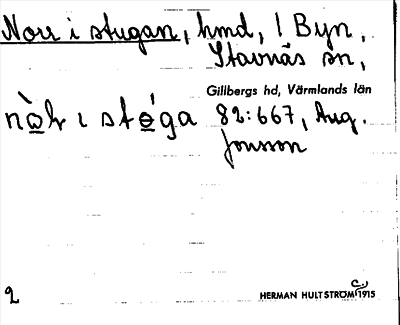 Norr i stugan, hmd, 1 Byn,
Stavnäs sn,
Gillbergs hd, Värmlands län
nò̱ɫr ı stǿga 82:667, Aug.
Jonsson
2
HERMAN HULTSTRÖM c. 1915